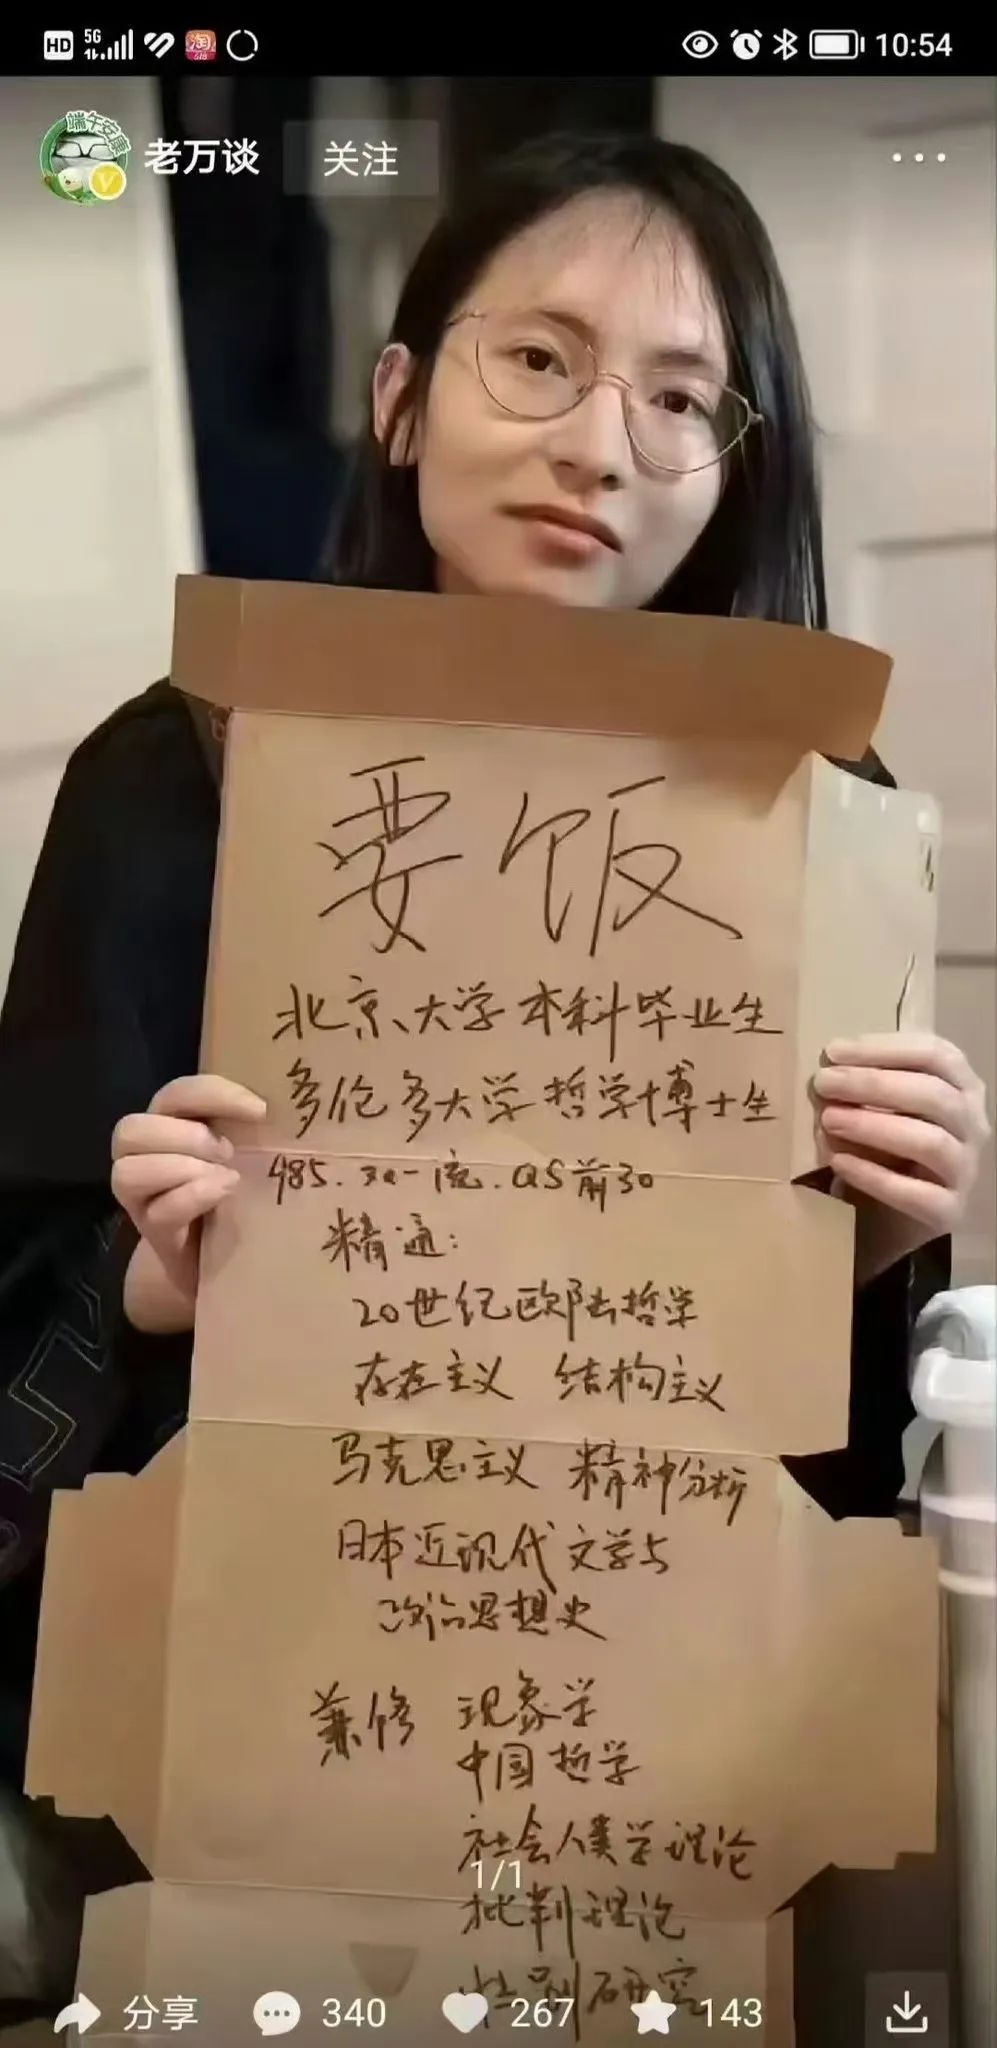 HD 5G 淘 618 10:54
端午安康
V
老万谈 关注
要饭
北京大学本科毕业生
多伦多大学哲学博士生
985.双一流.QS前30
精通:
20世纪欧陆哲学
存在主义 结构主义
马克思主义 精神分析
日本近现代文学与
政治思想史
兼修 现象学
中国哲学
社会人类学理论
1/1
批判理论
性别研究
分享 340 267 143